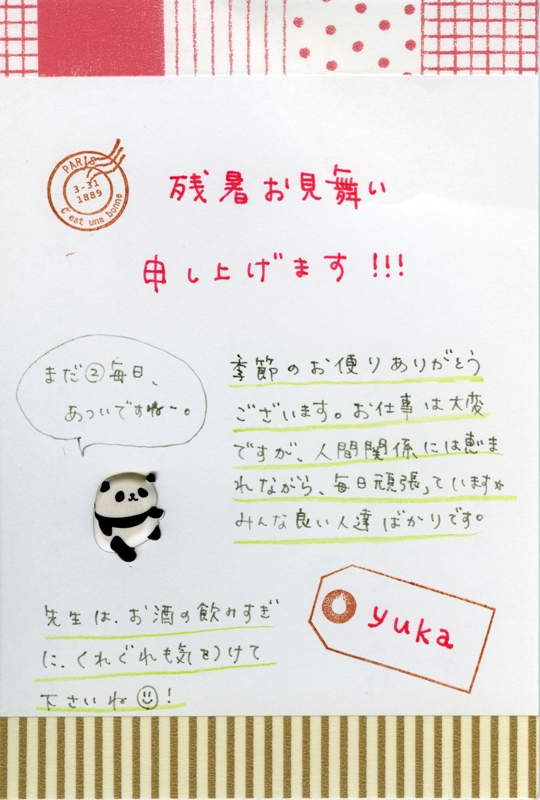 PARIS
3-31
1889
C'est une bonne
残暑お見舞い
申し上げます!!!
まだ②毎日、
あついですね〜。
季節のお便りありがとう
ございます。お仕事は大変
ですが、人間関係には恵ま
れながら、毎日頑張っています☆
みんな良い人達ばかりです。
先生は、お酒の飲みすぎ
に、くれぐれも気をつけて
下さいね☺!
yuka